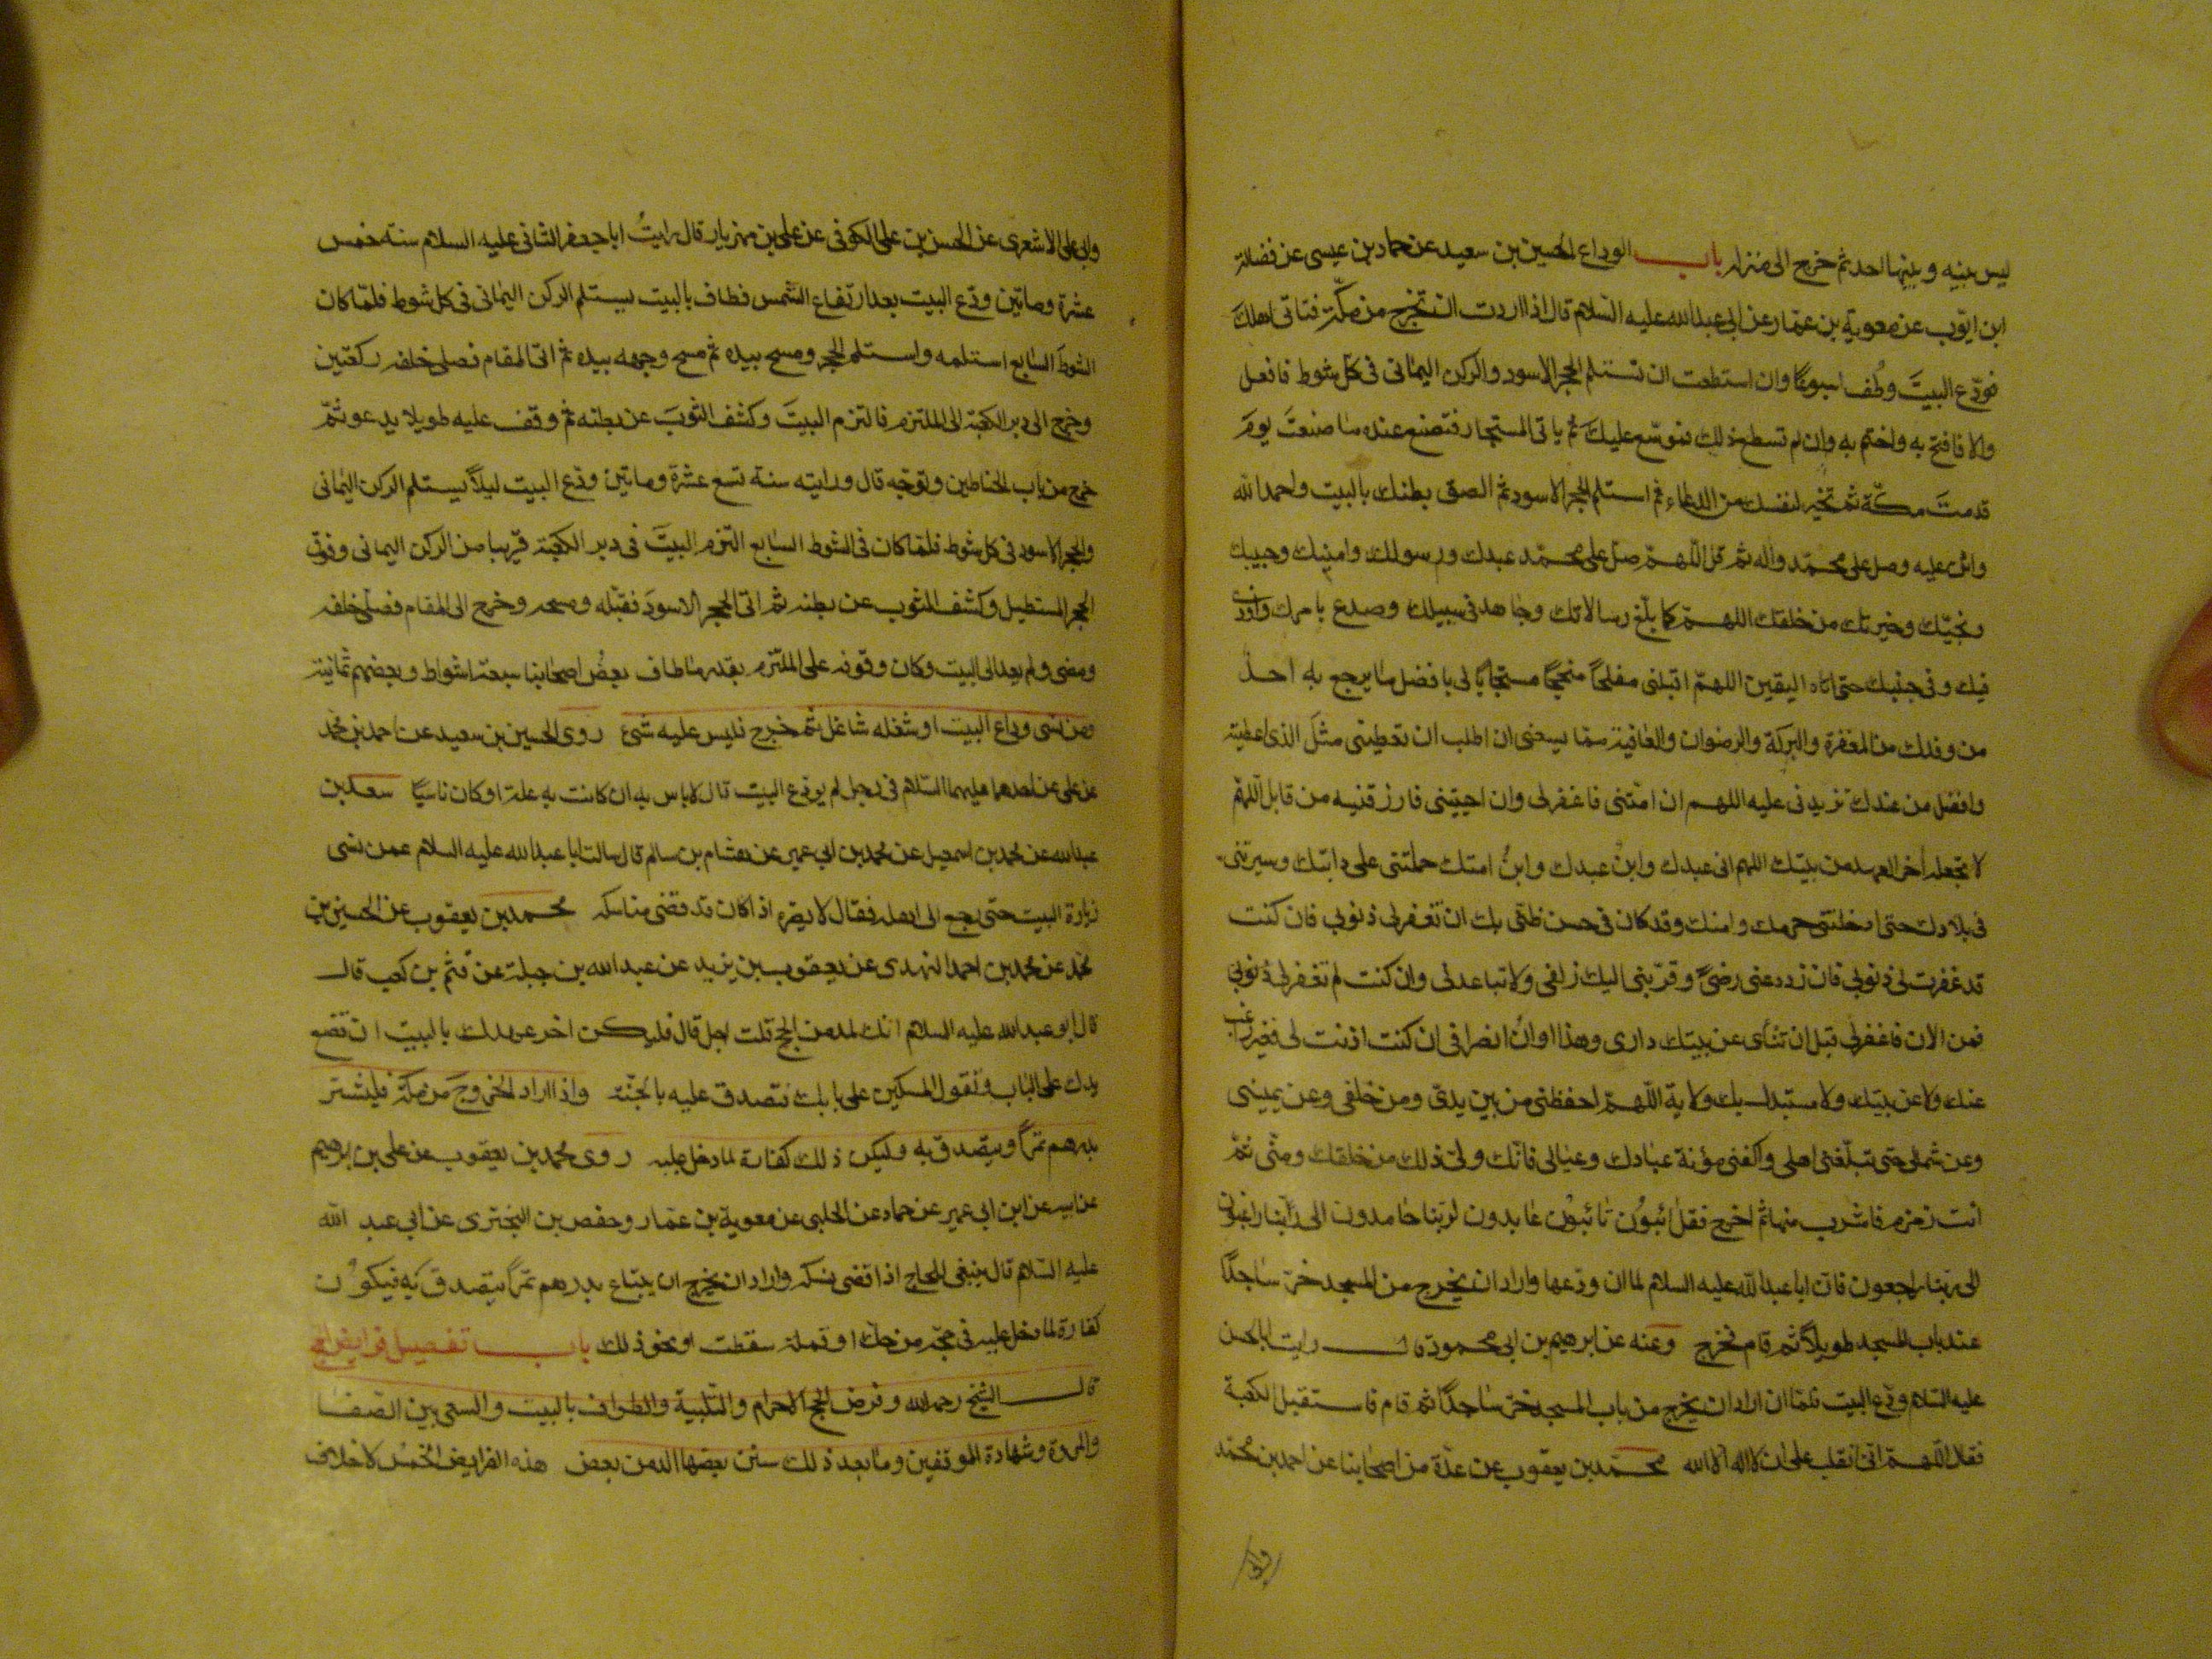 ليس بينه وبينها احد ثم خرج الى منزله باب الوداع الحسين بن سعيد عن حماد بن عيسى عن فضالة
ابن ايوب عن معوية بن عمار عن ابي عبد الله عليه السلام قال اذا اردت ان تخرج من مكة فتاتى اهلك
فودع البيت وطف اسبوعًا وان استطعت ان تستلم الحجر الاسود والركن اليماني في كل شوط فافعل
والا فافتح به واختم به وان لم تسطع ذلك فموسّع عليك ثم ياتى المستجار فتصنع عنده ما صنعت يوم
قدمت مكة ثم تخير لنفسك من الدعاء ثم استلم الحجر الاسود ثم الصق بطنك بالبيت واحمد الله
واثن عليه وصل على محمد واله ثم قل اللهم صل على محمد عبدك ورسولك وامينك وحبيبك
ونجيّك وخيرتك من خلقك اللهم كما بلّغ رسالاتك وجاهد في سبيلك وصدع بامرك واوذى
فيك وفي جنبك حتى اتاه اليقين اللهم اقبلنى مفلحًا منجحًا مستجابًا لى بافضل ما يرجع به احد
من وفدك من المغفرة والبركة والرضوان والعافية مما يسعنى ان اطلب ان تعطينى مثل الذى اعطيته
وافضل من عندك تزيدنى عليه اللهم ان امتنى فاغفر لى وان احييتنى فارزقنيه من قابل اللهم
لا تجعله اخر العهد من بيتك اللهم انى عبدك وابن عبدك وابن امتك حملتنى على دابتك وسيرتنى
فى بلادك حتى ادخلتنى حرمك وامنك وقد كان فى حسن ظنى بك ان تغفر لى ذنوبى فان كنت
قد غفرت لى ذنوبى فازدد عنى رضىً وقربنى اليك زلفى ولا تباعدنى وان كنت لم تغفر لى ذنوبى
فمن الان فاغفر لى قبل ان تنأى عن بيتك دارى وهذا اوان انصرافى ان كنت اذنت لى غير راغب
عنك ولا عن بيتك ولا مستبدل بك ولا به اللهم احفظنى من بين يدىّ ومن خلفى وعن يمينى
وعن شمالى حتى تبلغنى اهلى واكفنى مؤنة عبادك وعيالى فانك ولى ذلك من خلقك ومنّى ثم
ائت زمزم فاشرب منها ثم اخرج فقل ائبون تائبون عابدون لربنا حامدون الى ربنا راغبون
الى ربنا راجعون فان ابا عبد الله عليه السلام لما ان ودعها واراد ان يخرج من المسجد خرّ ساجدًا
عند باب المسجد طويلًا ثم قام فخرج وعنه عن ابرهيم بن ابى محمود قال رايت ابا الحسن
عليه السلام ودع البيت فلما ان اراد ان يخرج من باب المسجد خرّ ساجدًا ثم قام فاستقبل الكعبة
فقال اللهم انى انقلب على ان لا اله الا الله محمد بن يعقوب عن عدة من اصحابنا عن احمد بن محمد
وابى على الاشعرى عن الحسن بن على الكوفى عن على بن مهزيار قال رايت ابا جعفر الثانى عليه السلام سنة خمس
عشرة وماتين ودع البيت بعد ارتفاع الشمس فطاف بالبيت يستلم الركن اليمانى فى كل شوط فلما كان
الشوط السابع استلمه واستلم الحجر ومسح بيده ثم مسح وجهه بيده ثم اتى المقام فصلى خلفه ركعتين
وخرج الى دبر الكعبة الى الملتزم فالتزم البيت وكشف الثوب عن بطنه ثم وقف عليه طويلا يدعو ثم
خرج من باب الحناطين وتوجه قال ورايته سنة تسع عشرة وماتين ودع البيت ليلًا يستلم الركن اليمانى
والحجر الاسود فى كل شوط فلما كان فى الشوط السابع التزم البيت فى دبر الكعبة قريبا من الركن اليمانى وفوق
الحجر المستطيل وكشف الثوب عن بطنه ثم اتى الحجر الاسود فقبله ومسحه وخرج الى المقام فصلى خلفه
ومضى ولم يعد الى البيت وكان وقوفه على الملتزم بقدر ما طاف بعض اصحابنا سبعة اشواط وبعضهم ثمانية
ومن نسى وداع البيت او شغله شاغل ثم خرج فليس عليه شئ روى الحسين بن سعيد عن احمد بن محمد
عن على عن احدهما عليهما السلام فى رجل لم يودع البيت قال لا باس به ان كانت به علة او كان ناسيًا سعد بن
عبد الله عن محمد بن اسمعيل عن محمد بن ابى عمير عن هشام بن سالم قال سالت ابا عبد الله عليه السلام عمن نسى
زيارة البيت حتى رجع الى اهله فقال لا يضره اذا كان قد قضى مناسكه محمد بن يعقوب عن الحسين بن
محمد عن محمد بن احمد النهدى عن يعقوب بن يزيد عن عبد الله بن جبلة عن قثم بن كعب قال
قال ابو عبد الله عليه السلام انك لمدمن الحج قلت اجل قال فليكن اخر عهدك بالبيت ان تضع
يدك على الباب وتقول المسكين على بابك فتصدق عليه بالجنة واذا اراد الخروج من مكة فليشتر
بدرهم تمرًا ويتصدق به وليكن ذلك كفارة لما دخل عليه روى محمد بن يعقوب عن على بن ابرهيم
عن ابيه عن ابن ابى عمير عن حماد عن الحلبى عن معوية بن عمار وحفص بن البخترى عن ابى عبد الله
عليه السلام قال ينبغى للحاج اذا قضى نسكه واراد ان يخرج ان يبتاع بدرهم تمرًا يتصدق به فيكون
كفارة لما دخل عليه فى حجه من حك او قملة سقطت او نحو ذلك باب تفصيل فرايض الحج
قال الشيخ رحمه الله وفرض الحج الاحرام والتلبية والطواف بالبيت والسعى بين الصفا
والمروة وشهادة الموقفين وما بعد ذلك سنن بعضها اكد من بعض هذه الفرايض الخمس لا خلاف